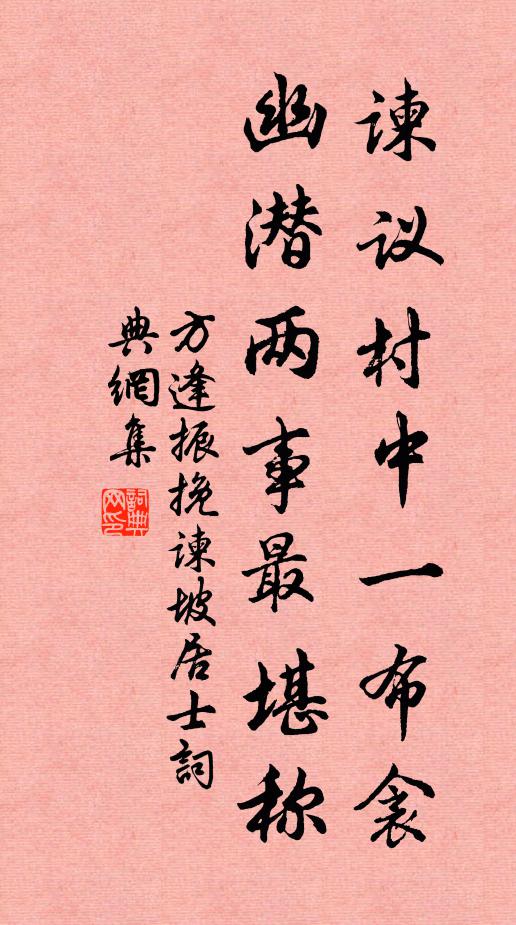 谏议村中一布衾
幽潜两事最堪称
方逢振挽谏坡居士詞
典網集
詞典网印